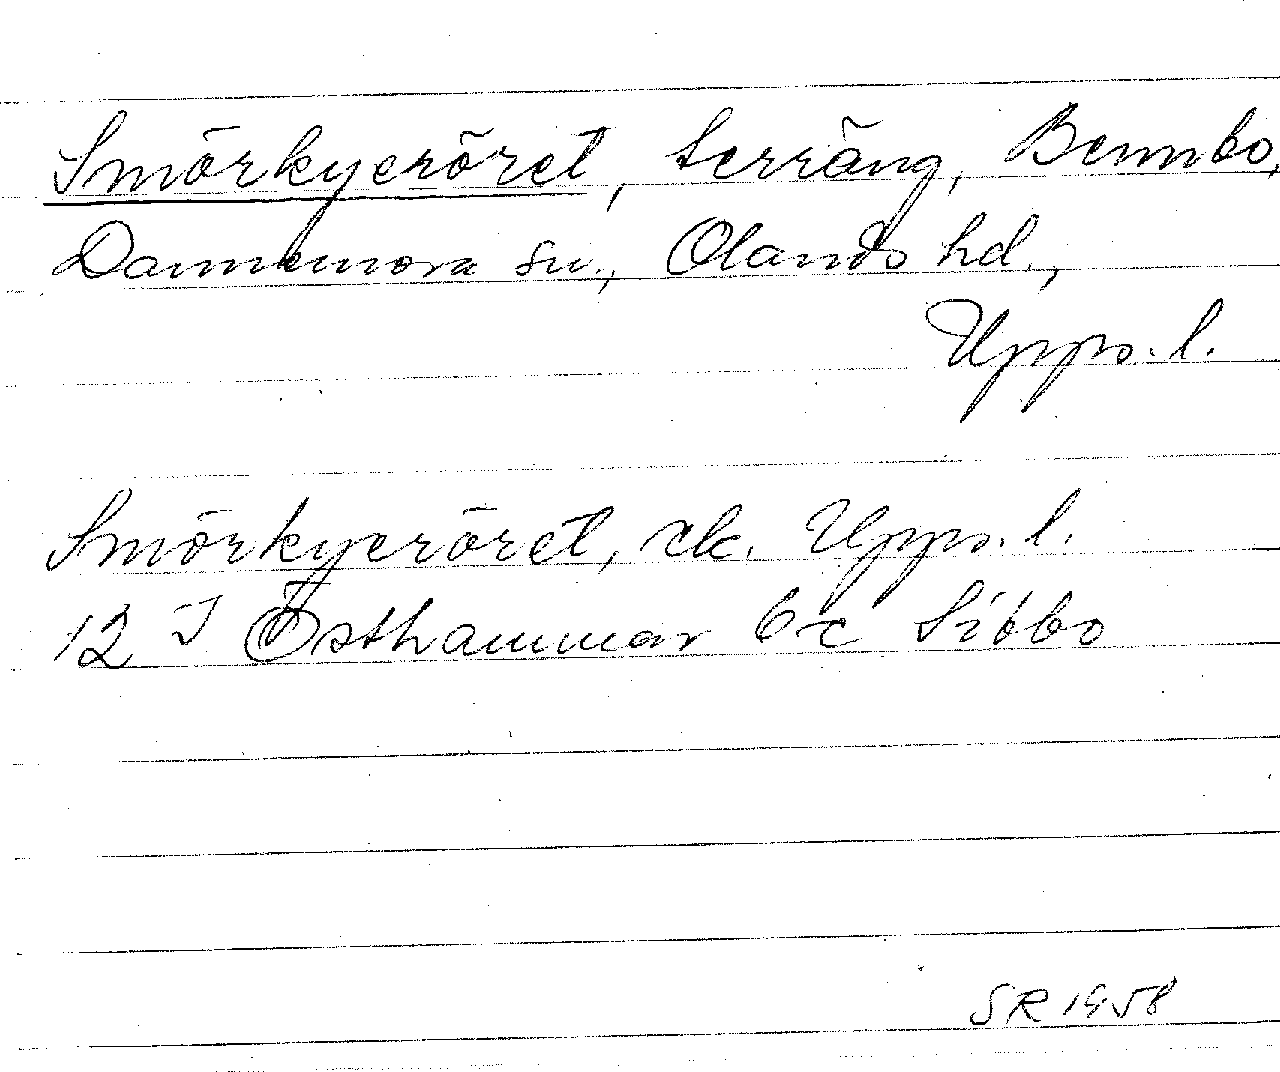 Smörkyeröret, terräng, Bennbo,
Dannemora sn., Olands hd.,
Upps. l.
Smörkyeröret, ek. Upps. l.
12 I Östhammar 6 c Sibbo
SR 1958